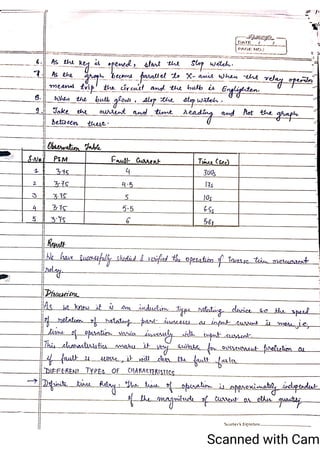 DATE: / /
PAGE NO.:
6. As the key is opened, start the stop watch.
7. As the graph become parallel to X-axis when the relay operation
means trip the circuit and the bulb is Enlighten.
8. When the bulb glows, stop the stop watch.
9. Take the current and time reading and Plot the graph
between these.
Observation Table
S.No PSM Fault Current Time (sec)
1 3.75 4
2 3.75 4.5 12s
3 3.75 5 10s
4 3.75 5.5
5 3.75 6
Result
We have successfully studied & verified the operation of Inverse Time overcurrent
relay.
Discussion
As we know it is an induction type rotating device so the speed
of rotation of rotating part increases as input current is more, i.e,
time of operation varies inversely with input current.
This characteristics makes it very suitable for overcurrent protection as
if fault is severe, it will clear the fault faster
DIFFERENT TYPES OF CHARACTERISTICS
→ Definite time Relay: The time of operation is approximately independent
of the magnitude of current or other quantity
Teacher's Signature
Scanned with Cam